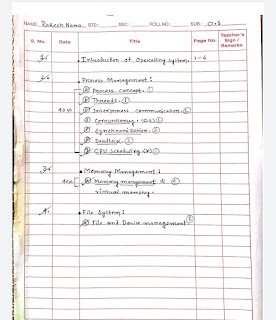 NAME: Rakesh Nama STD.: SEC.: ROLL NO.: SUB.: O.S
S. No. Date Title Page No. Teacher's Sign / Remarks
1. • Introduction of Operating system. 1-6
2. • Process Management:
Process concept. ①
Threads. ②
40% Interprocess communication.
Concurrency.
Synchronization.
Deadlock.
CPU scheduling
3. • Memory Management:
40% Memory management &
virtual memory.
4. • File System:
File and Device management